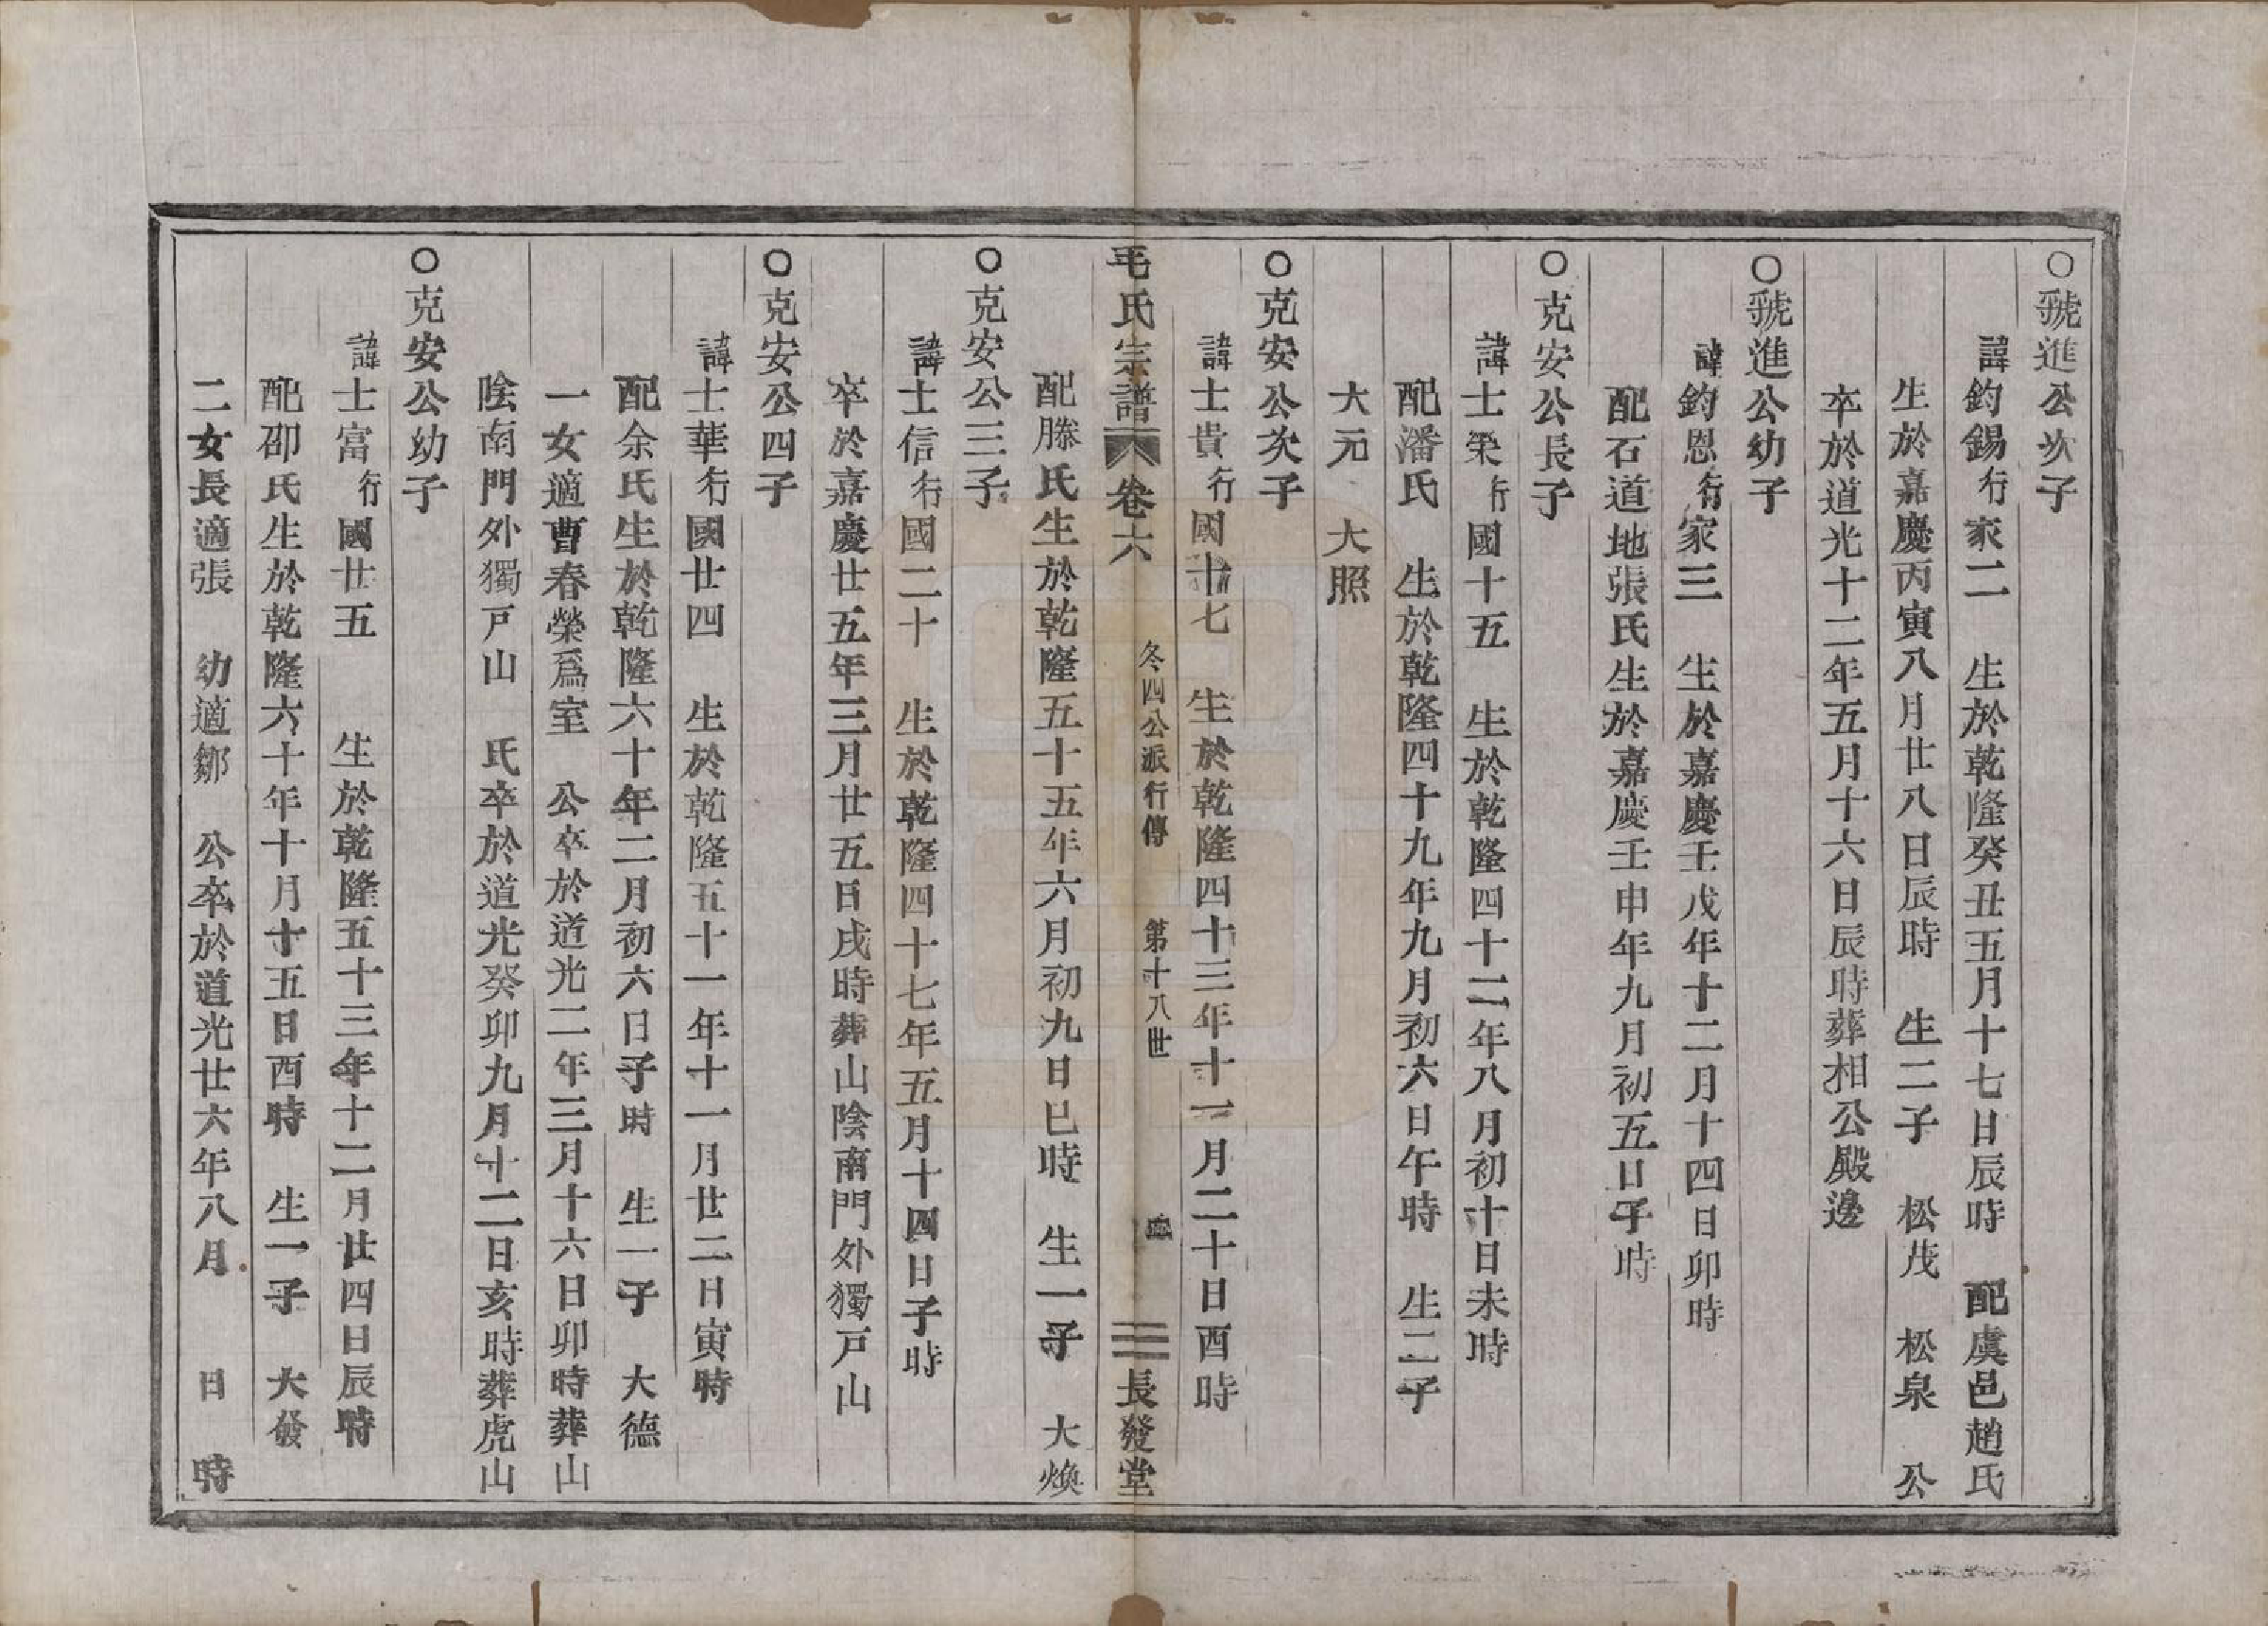 ○號進公次子
諱鈞錫行家二　生於乾隆癸丑五月十七日辰時　配虞邑趙氏
生於嘉慶丙寅八月廿八日辰時　生二子　松茂　松泉　公
卒於道光十二年五月十六日辰時葬相公殿邊
○號進公幼子
諱鈞恩行家三　生於嘉慶壬戌年十二月十四日卯時
配石道地張氏生於嘉慶壬申年九月初五日子時
○克安公長子
諱士榮行國十五　生於乾隆四十二年八月初十日未時
配潘氏　生於乾隆四十九年九月初六日午時　生二子
大元　大照
○克安公次子
諱士貴行國十七　生於乾隆四十三年十一月二十日酉時
毛氏宗譜　卷六　冬四公派行傳　第十八世　長發堂
配滕氏生於乾隆五十五年六月初九日巳時　生一子　大煥
○克安公三子
諱士信行國二十　生於乾隆四十七年五月十四日子時
卒於嘉慶廿五年三月廿五日戌時葬山陰南門外獨戸山
○克安公四子
諱士華行國廿四　生於乾隆五十一年十一月廿二日寅時
配余氏生於乾隆六十年二月初六日子時　生一子　大德
一女適曹春榮爲室　公卒於道光二年三月十六日卯時葬山
陰南門外獨戸山　氏卒於道光癸卯九月十二日亥時葬虎山
○克安公幼子
諱士富行國廿五　生於乾隆五十三年十二月廿四日辰時
配邵氏生於乾隆六十年十月十五日酉時　生一子　大發
二女長適張　幼適鄒　公卒於道光廿六年八月　日　時